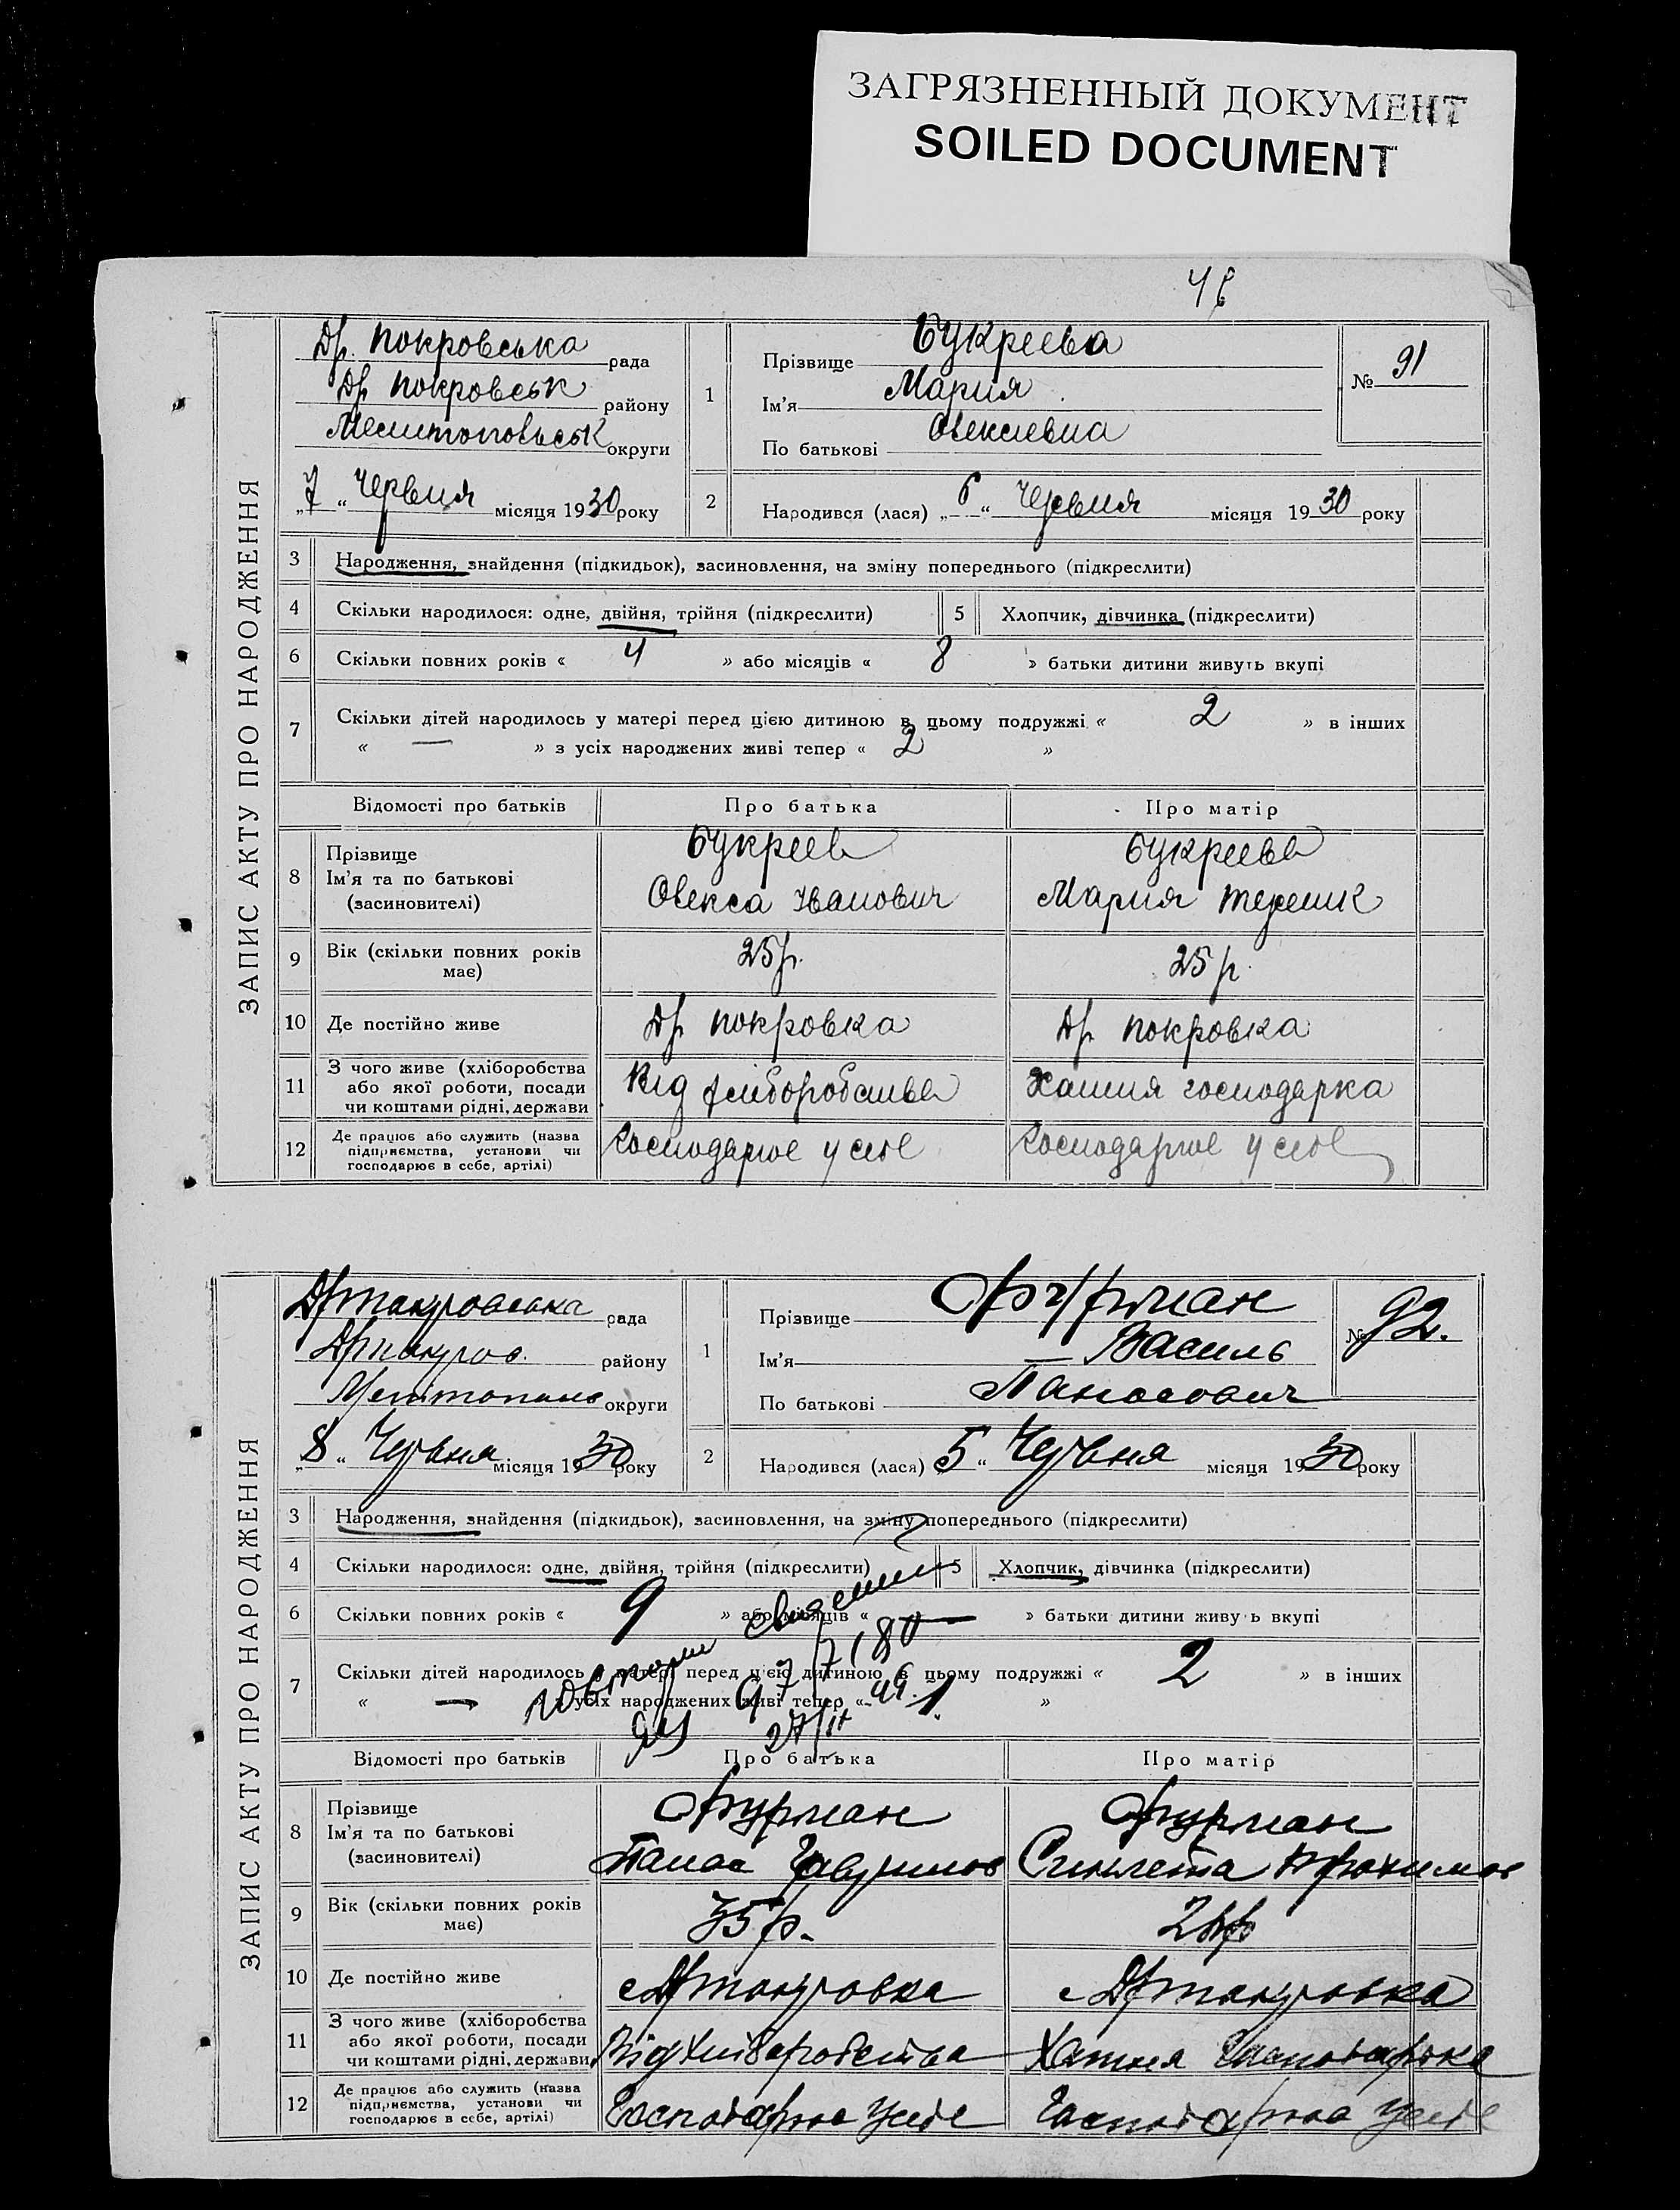 ЗАГРЯЗНЕННЫЙ ДОКУМЕНТ
SOILED DOCUMENT
ЗАПИС АКТУ ПРО НАРОДЖЕННЯ
Др. Покровська рада
Др. Покровськ району
округи
„7“ Червня місяця 1930 року
1
Прізвище Букреева
Ім'я Мария
По батькові Олексіевна
№ 91
2
Народився (лася) „6“ Червня місяця 1930 року
3 Народження, знайдення (підкидьок), засиновлення, на зміну попереднього (підкреслити)
4 Скільки народилося: одне, двійня, трійня (підкреслити) 5 Хлопчик, дівчинка (підкреслити)
6 Скільки повних років « 4 » або місяців « 8 » батьки дитини живуть вкупі
7 Скільки дітей народилось у матері перед цією дитиною в цьому подружжі « 2 » в інших
« — » з усіх народжених живі тепер « 2 »
Відомості про батьків Про батька Про матір
8 Прізвище Букреев Букреева
Ім'я та по батькові Олекса Іванович Мария
(засиновителі)
9 Вік (скільки повних років має) 25 р. 25 р.
10 Де постійно живе Др Покровка Др Покровка
11 З чого живе (хліборобства
або якої роботи, посади
чи коштами рідні, держави Від хліборобства Хатня господарка
12 Де працює або служить (назва
підприємства, установи чи
господарює в себе, артілі) Господарює у себе Господарює у себе
ЗАПИС АКТУ ПРО НАРОДЖЕННЯ
рада
району
округи
„8“ Червня місяця 1930 року
1
Прізвище Фурман
Ім'я Василь
По батькові Панасович
№ 92.
2
Народився (лася) „5“ Червня місяця 1930 року
3 Народження, знайдення (підкидьок), засиновлення, на зміну попереднього (підкреслити)
4 Скільки народилося: одне, двійня, трійня (підкреслити) 5 Хлопчик, дівчинка (підкреслити)
6 Скільки повних років « 9 » або місяців « — » батьки дитини живуть вкупі
7 Скільки дітей народилось у матері перед цією дитиною в цьому подружжі « 2 » в інших
« — » з усіх народжених живі тепер « 1 »
Відомості про батьків Про батька Про матір
8 Прізвище Фурман Фурман
Ім'я та по батькові Панас
(засиновителі)
9 Вік (скільки повних років має) 35 р.
10 Де постійно живе
11 З чого живе (хліборобства
або якої роботи, посади
чи коштами рідні, держави Від хліборобства Хатня господарка
12 Де працює або служить (назва
підприємства, установи чи
господарює в себе, артілі) Господарює у себе Господарює у себе